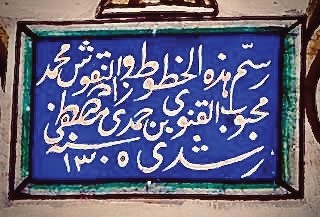 رسم هذه الخطوط والنقوش محمد
محبوب القنوي بن حمدي مصطفى
رشدي سنه ١٣٠٥